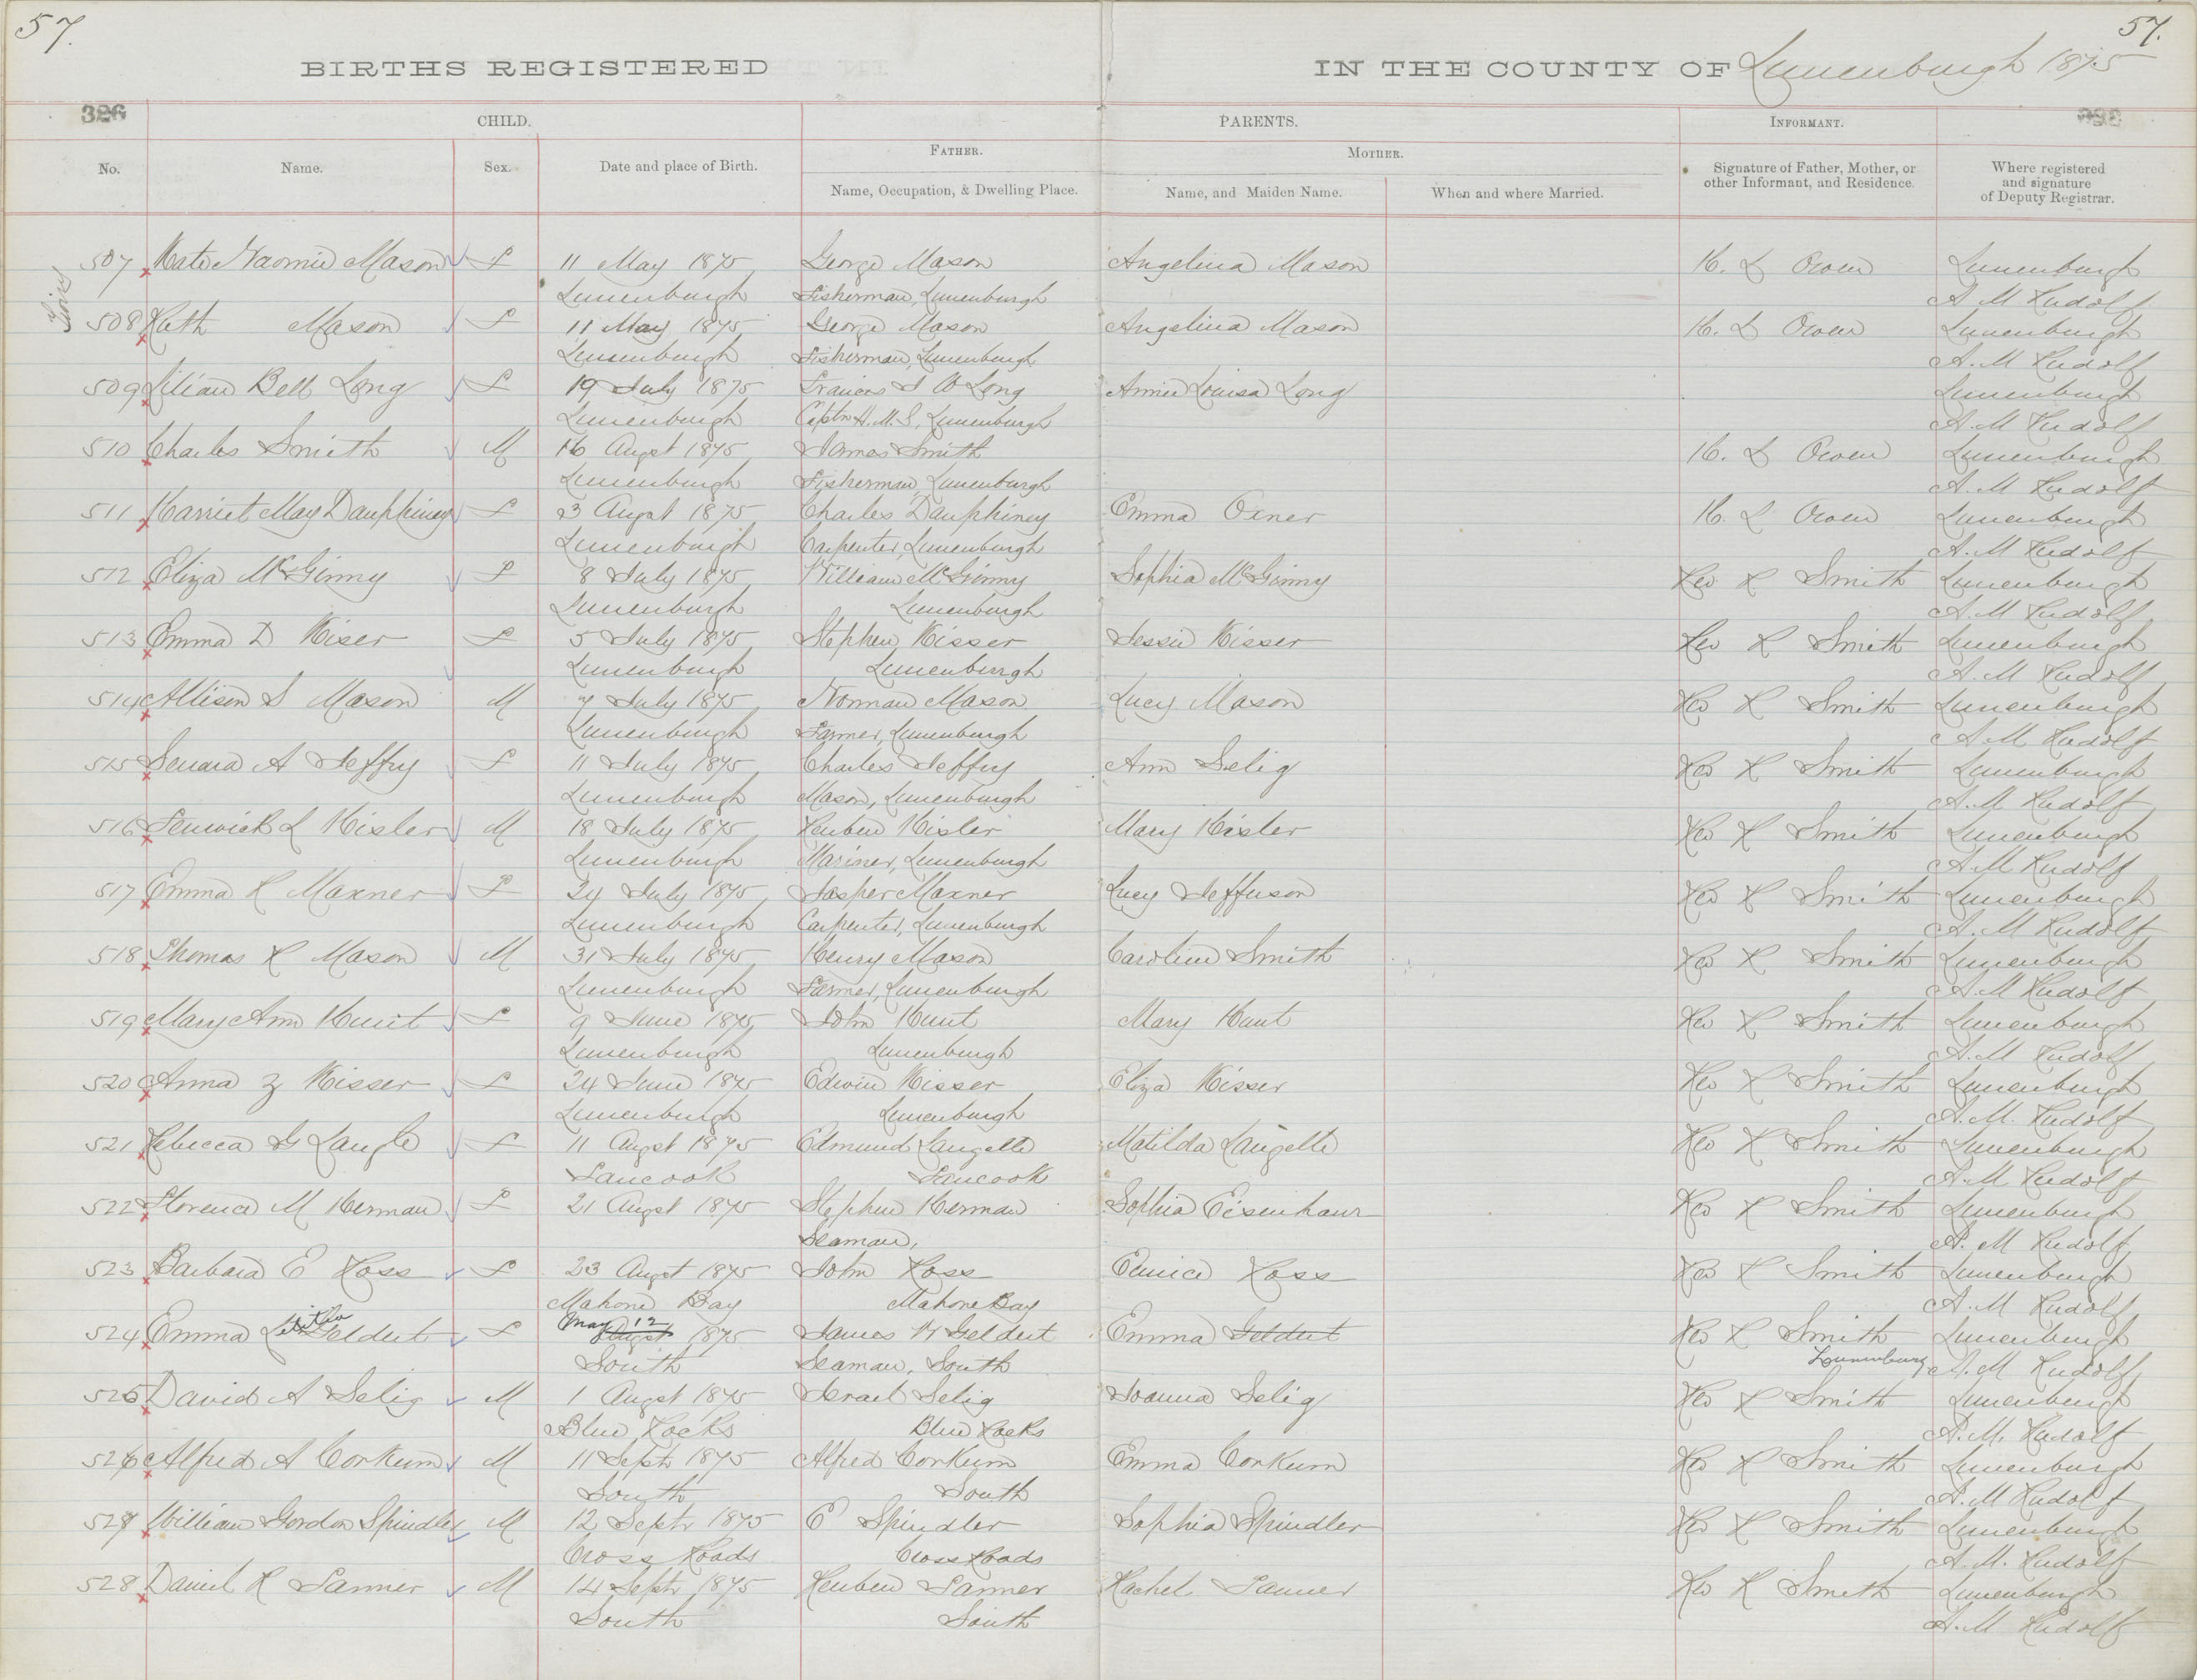 57.
57.
BIRTHS REGISTERED IN THE COUNTY OF Lunenburgh 1875
326
CHILD. PARENTS. INFORMANT.
No. Name. Sex. Date and place of Birth. FATHER. MOTHER. Signature of Father, Mother, or other Informant, and Residence. Where registered and signature of Deputy Registrar.
Name, Occupation, & Dwelling Place. Name, and Maiden Name. When and where Married.
507 Kate Naomie Mason F 11 May 1875 George Mason Angelina Mason H. L Owen Lunenburgh
Lunenburgh Fisherman, Lunenburgh A M Rudolf
508 Ruth Mason F 11 May 1875 George Mason Angelina Mason H. L Owen Lunenburgh
Lunenburgh Fisherman, Lunenburgh A. M Rudolf
509 Lilian Bell Long F 19 July 1875 Frances Long Annie Louisa Long Lunenburgh
Lunenburgh Captn H. M. S, Lunenburgh A M Rudolf
510 Charles Smith M 16 Augst 1875 James Smith H. L Owen Lunenburgh
Lunenburgh Fisherman, Lunenburgh A. M Rudolf
511 Harriet May Dauphiney F 23 Augst 1875 Charles Dauphiney Emma Oxner H. L Owen Lunenburgh
Lunenburgh Carpenter, Lunenburgh A. M Rudolf
512 Eliza McGinny F 8 July 1875 William McGinny Sophia McGinny Rev R Smith Lunenburgh
Lunenburgh Lunenburgh A. M Rudolf
513 Emma D Kiser F 5 July 1875 Stephen Kisser Jessie Kisser Rev R Smith Lunenburgh
Lunenburgh Lunenburgh A. M Rudolf
514 Allison S Mason M 7 July 1875 Norman Mason Lucy Mason Rev R Smith Lunenburgh
Lunenburgh Farmer, Lunenburgh A M Rudolf
515 A Jeffry F 11 July 1875 Charles Jeffry Ann Selig Rev R Smith Lunenburgh
Lunenburgh Mason, Lunenburgh A. M Rudolf
516 Fenwick L Hisler M 18 July 1875 Reuben Hisler Mary Hisler Rev R Smith Lunenburgh
Lunenburgh Mariner, Lunenburgh A M Rudolf
517 Emma R Maxner F 24 July 1875 Jasper Maxner Lucy Jefferson Rev R Smith Lunenburgh
Lunenburgh Carpenter, Lunenburgh A. M Rudolf
518 Thomas R Mason M 31 July 1875 Henry Mason Caroline Smith Rev R Smith Lunenburgh
Lunenburgh Farmer, Lunenburgh A. M Rudolf
519 Mary Ann Hunt F 9 June 1875 John Hunt Mary Hunt Rev R Smith Lunenburgh
Lunenburgh Lunenburgh A. M Rudolf
520 Anna Z Kisser F 24 June 1875 Edwin Kisser Eliza Kisser Rev R Smith Lunenburgh
Lunenburgh Lunenburgh A. M. Rudolf
521 Rebecca G Langle F 11 Augst 1875 Edmund Langelle Matilda Langelle Rev R Smith Lunenburgh
Tancook Tancook A. M Rudolf
522 Florence M Herman F 21 Augst 1875 Stephen Herman Sophia Eisenhaur Rev R Smith Lunenburgh
Seaman, A. M Rudolf
523 Barbara E Ross F 23 Augst 1875 John Ross Eunice Ross Rev R Smith Lunenburgh
Mahone Bay Mahone Bay A. M Rudolf
524 Emma Geldert F May 12 Augst 1875 James Geldert Emma Geldert Rev R Smith Lunenburgh
South Seaman, South Lunenburg A. M Rudolf
525 David A Selig M 1 Augst 1875 Israel Selig Joanna Selig Rev R Smith Lunenburgh
Blue Rocks Blue Rocks A. M. Rudolf
526 Alfred A Corkum M 11 Septr 1875 Alfred Corkum Emma Corkum Rev R Smith Lunenburgh
South South A. M Rudolf
527 William Gordon Spindler M 12 Septr 1875 E Spindler Sophia Spindler Rev R Smith Lunenburgh
Cross Roads Cross Roads A. M. Rudolf
528 Daniel R Tanner M 14 Septr 1875 Reuben Tanner Rachel Tanner Rev R Smith Lunenburgh
South South A. M Rudolf